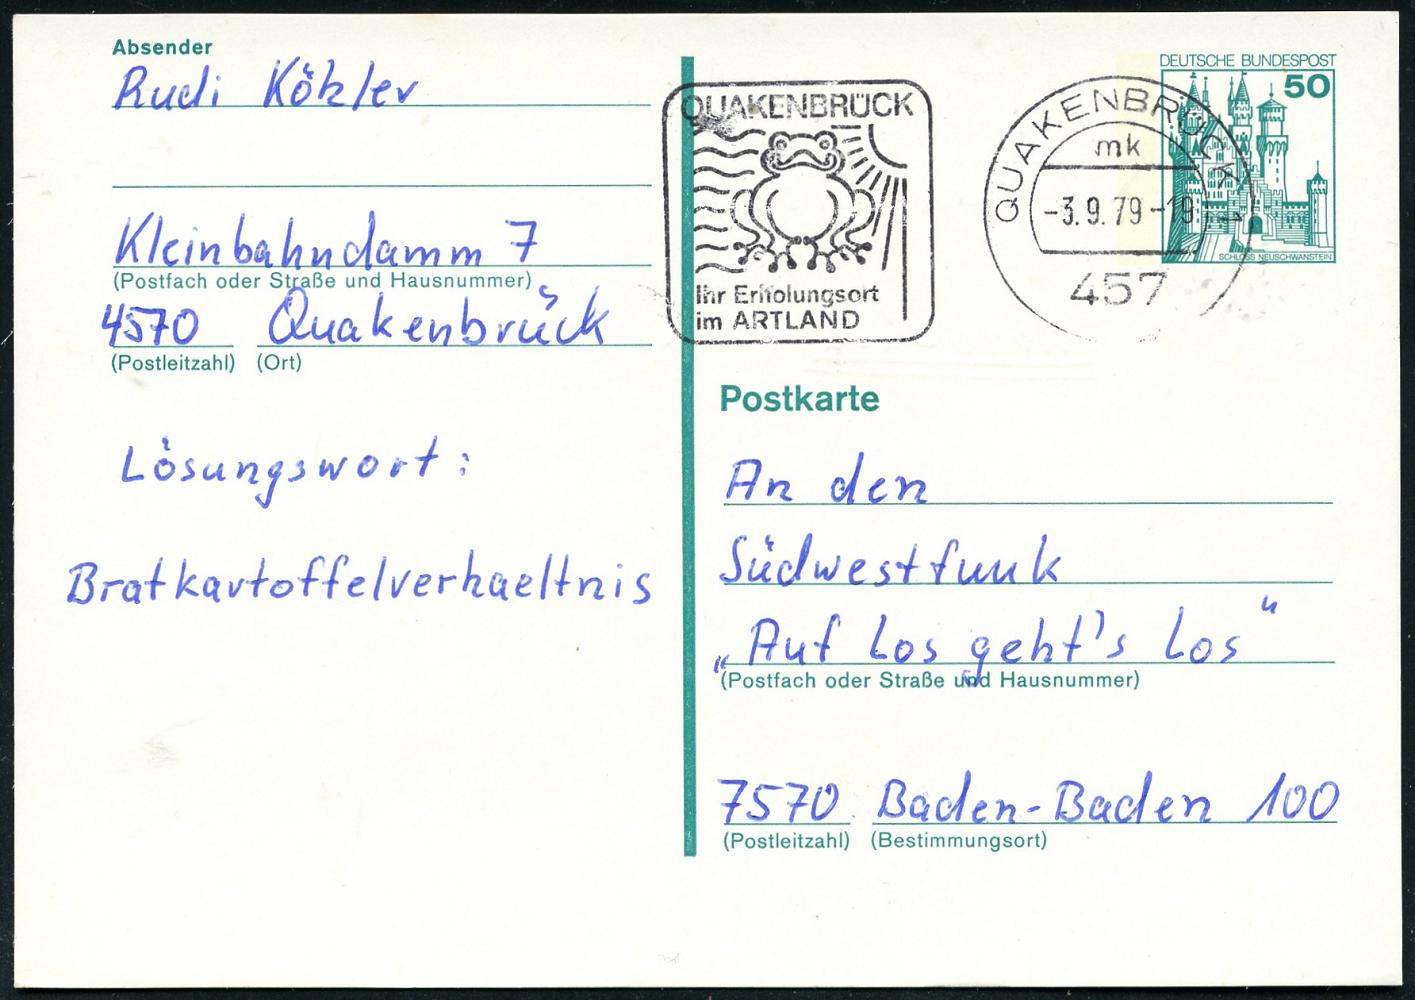 Absender
Rudi Köhler
Kleinbahndamm 7
(Postfach oder Straße und Hausnummer)
4570 Quakenbrück
(Postleitzahl) (Ort)
Lösungswort:
Bratkartoffelverhaeltnis
QUAKENBRÜCK
Ihr Erholungsort
im ARTLAND
QUAKENBRÜCK 1
mk
-3.9.79-19
457
DEUTSCHE BUNDESPOST
50
SCHLOSS NEUSCHWANSTEIN
Postkarte
An den
Südwestfunk
„Auf Los geht's Los“
(Postfach oder Straße und Hausnummer)
7570 Baden-Baden 100
(Postleitzahl) (Bestimmungsort)